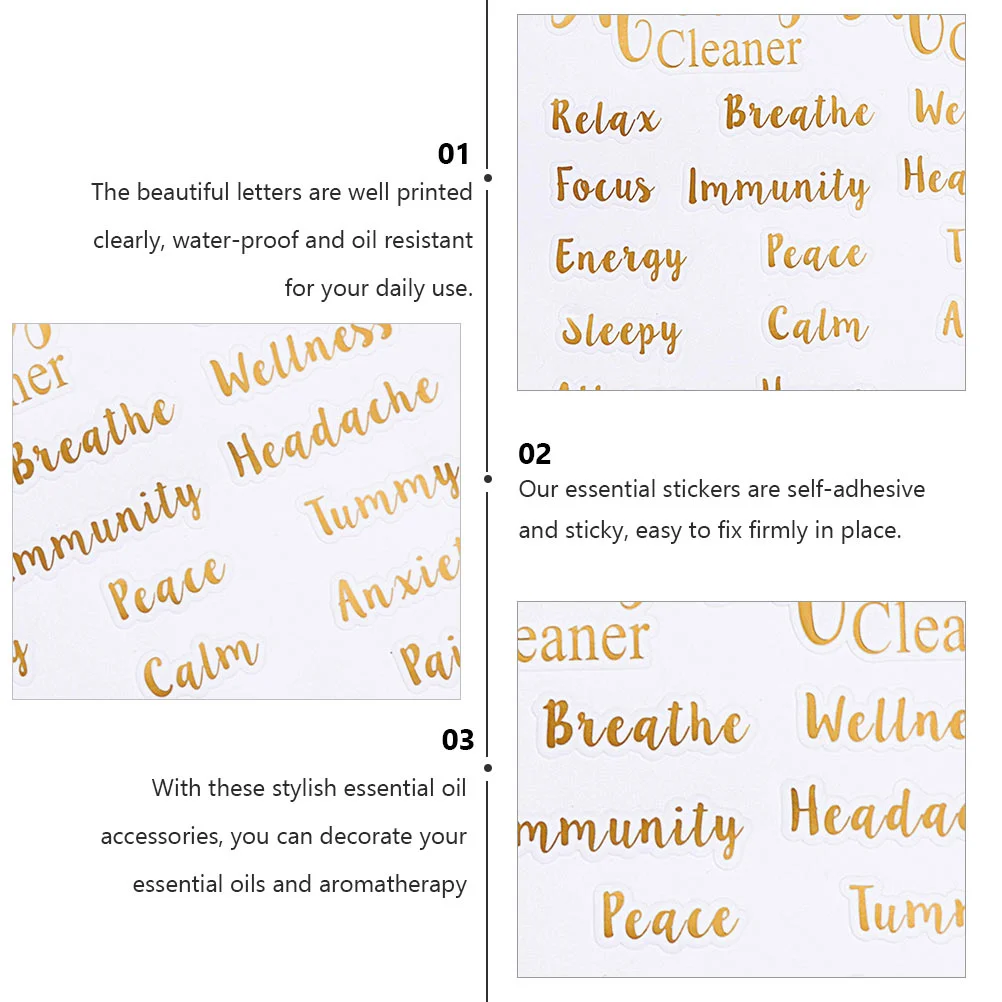 Cleaner
Relax Breathe We
Focus Immunity Hea
Energy Peace T
Sleepy Calm A
01
The beautiful letters are well printed
clearly, water-proof and oil resistant
for your daily use.
ner Wellness
Breathe Headache
mmunity Tummy
Peace Anxie
y Calm Pai
02
Our essential stickers are self-adhesive
and sticky, easy to fix firmly in place.
eaner Clea
Breathe Wellne
mmunity Headac
Peace Tum
03
With these stylish essential oil
accessories, you can decorate your
essential oils and aromatherapy